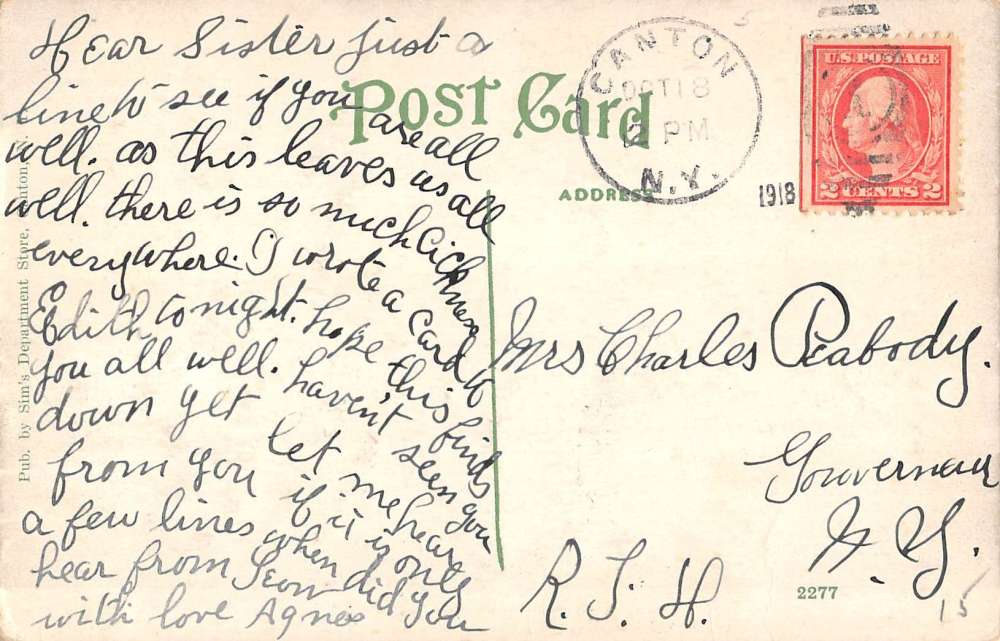 Dear Sister just a
line to see if you are all
well. as this leaves us all
well. there is so much Sickness
everywhere. I wrote a card to
Edith to night. hope this finds
you all well. haven't seen you
down yet let me hear
from you if it is only
a few lines when did you
hear from
with love Agnes
Post Card
ADDRESS
CANTON
OCT 18
2 PM
N.Y.
1918
U.S. POSTAGE
2 CENTS 2
Mrs Charles Peabody.
Gouverneur
N. Y.
R. F. D.
2277
15
Pub. by Sim's Department Store, Canton, N.Y.